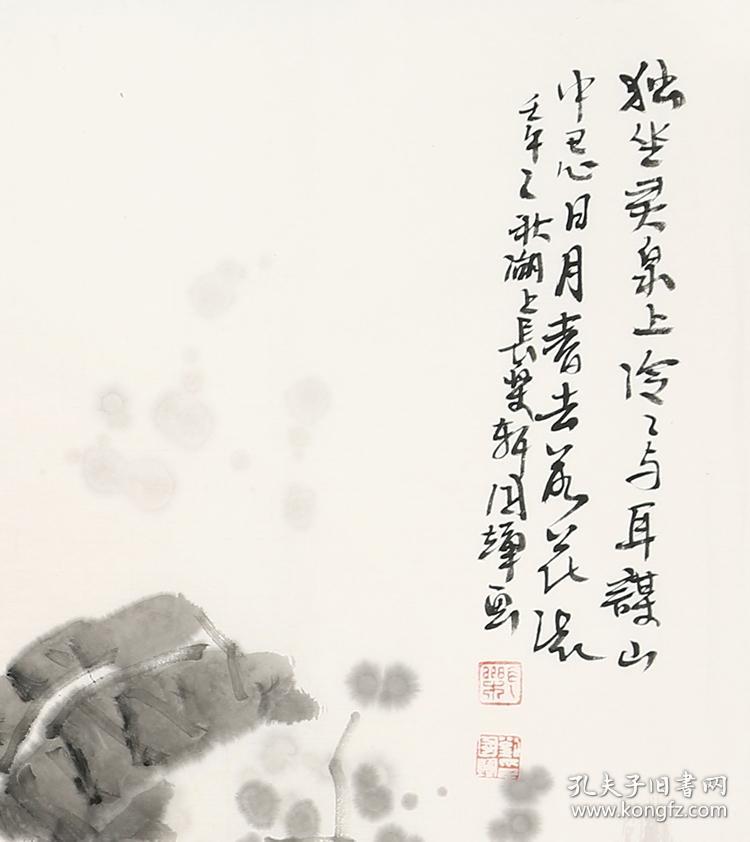 独坐灵泉上冷々与耳謀山
中忘日月春去落花流
壬午之秋湖上長樂軒国輝画
孔夫子旧书网
www.kongfz.com